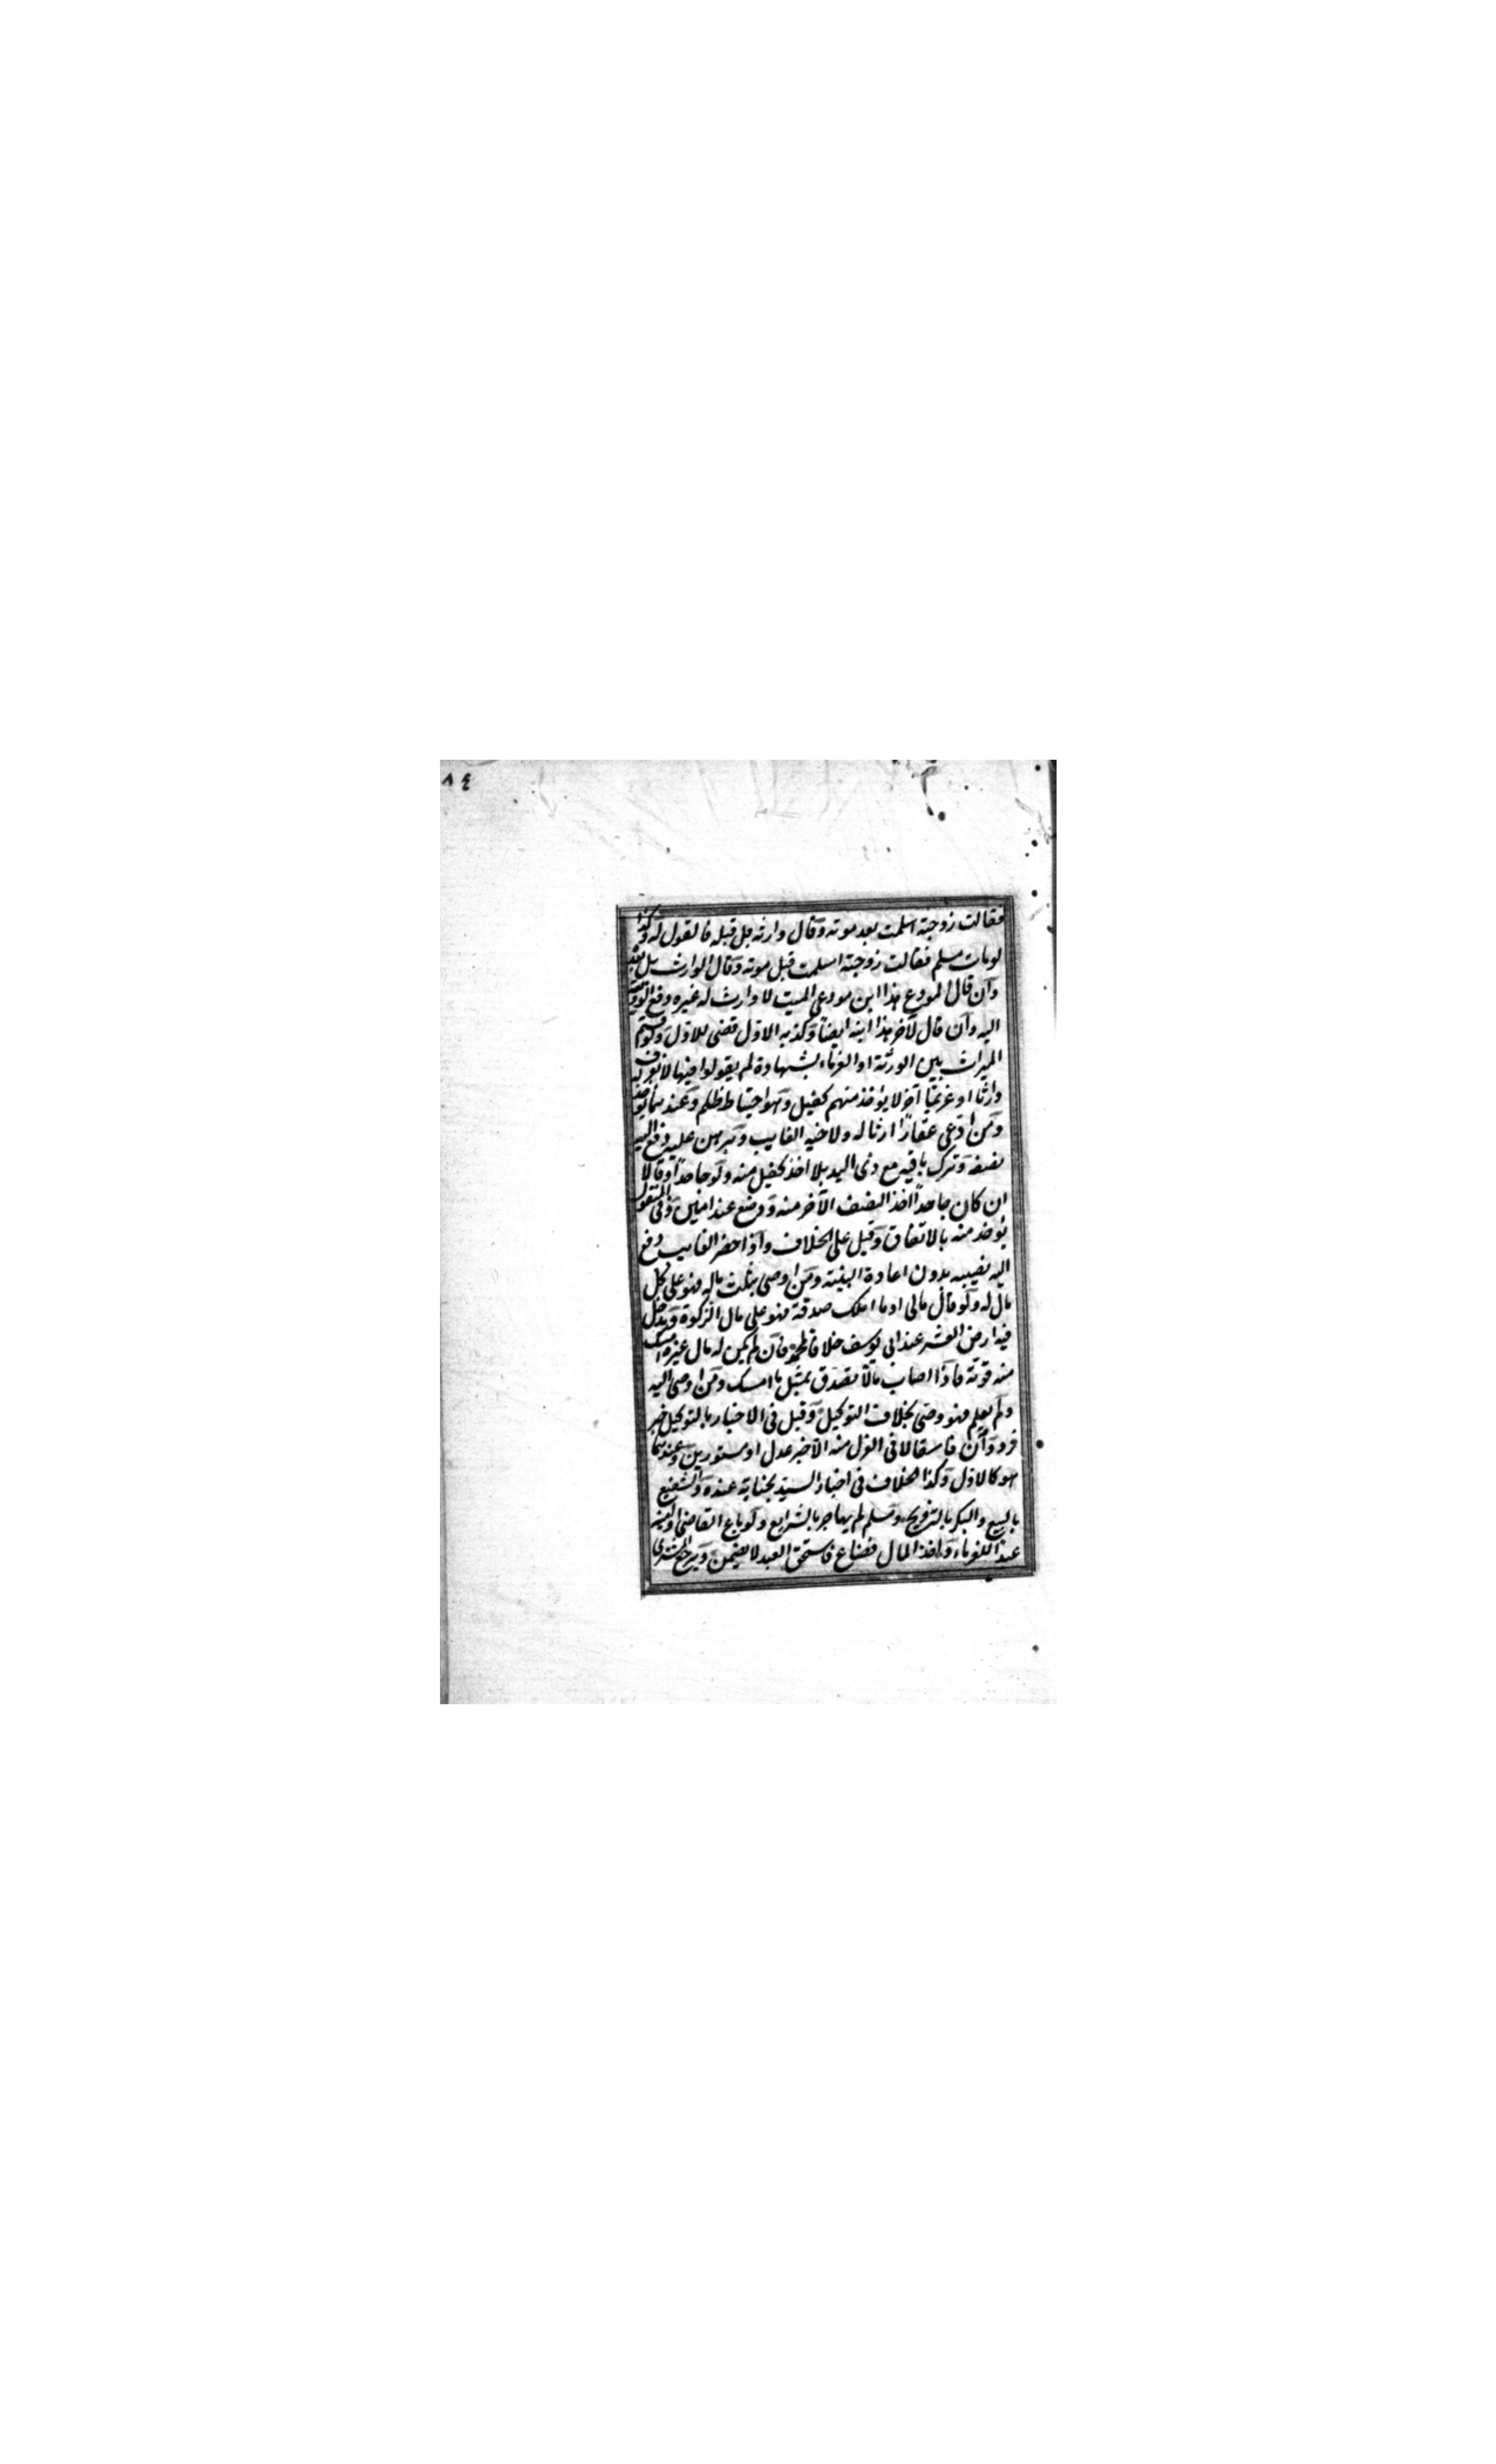 ٨٤
فقالت زوجته اسلمت بعد موته وقال وارثه بل قبله فالقول له وكذا
لو مات مسلم فقالت زوجته اسلمت قبل موته وقال الوارث بل بعده
وان قال المودع هذا ابن مودعي الميت لا وارث له غيره دفع الوديعة
اليه وان قال لآخر هذا ابنه ايضا وكذبه الاول قضى للاول ولو قسم
الميراث بين الورثة او الغرماء بشهادة لم يقولوا فيها لا نعرف له
وارثا او غريما آخر لا يؤخذ منهم كفيل وهو احتياط ظلم وعندهما يؤخذ
ومن ادعى عقارا ارثا له ولاخيه الغايب وبرهن عليه دفع اليه
نصفه وترك باقيه مع ذى اليد بلا اخذ كفيل منه ولو جاحدا وقالا
ان كان جاحدا اخذ النصف الآخر منه ووضع عند امين وفى المنقول
يؤخذ منه بالاتفاق وقيل على الخلاف واذا حضر الغايب دفع
اليه نصيبه بدون اعادة البينة ومن اوصى بثلث ماله فهو على كل
مال له ولو قال مالى او ما املك صدقة فهو على مال الزكوة ويدخل
فيه ارض العشر عند ابى يوسف خلافا لمحمد فان لم يكن له مال غيره امسك
منه قوته فاذا اصاب مالا تصدق بمثل ما امسك ومن اوصى اليه
ولم يعلم فهو وصى بخلاف التوكيل وقبل فى الاخبار بالتوكيل خبر
فرد وان فاسقا لا فى العزل منه الا خبر عدل او مستورين وعندهما
هو كالاول وكذا الخلاف فى اخبار السيد بجناية عبده والشفيع
بالبيع والبكر بالتزويج ومسلم لم يهاجر بالشرايع ولو باع القاضى او امينه
عبدا للغرماء واخذ المال فضاع فاستحق العبد لا يضمن ويرجع المشترى